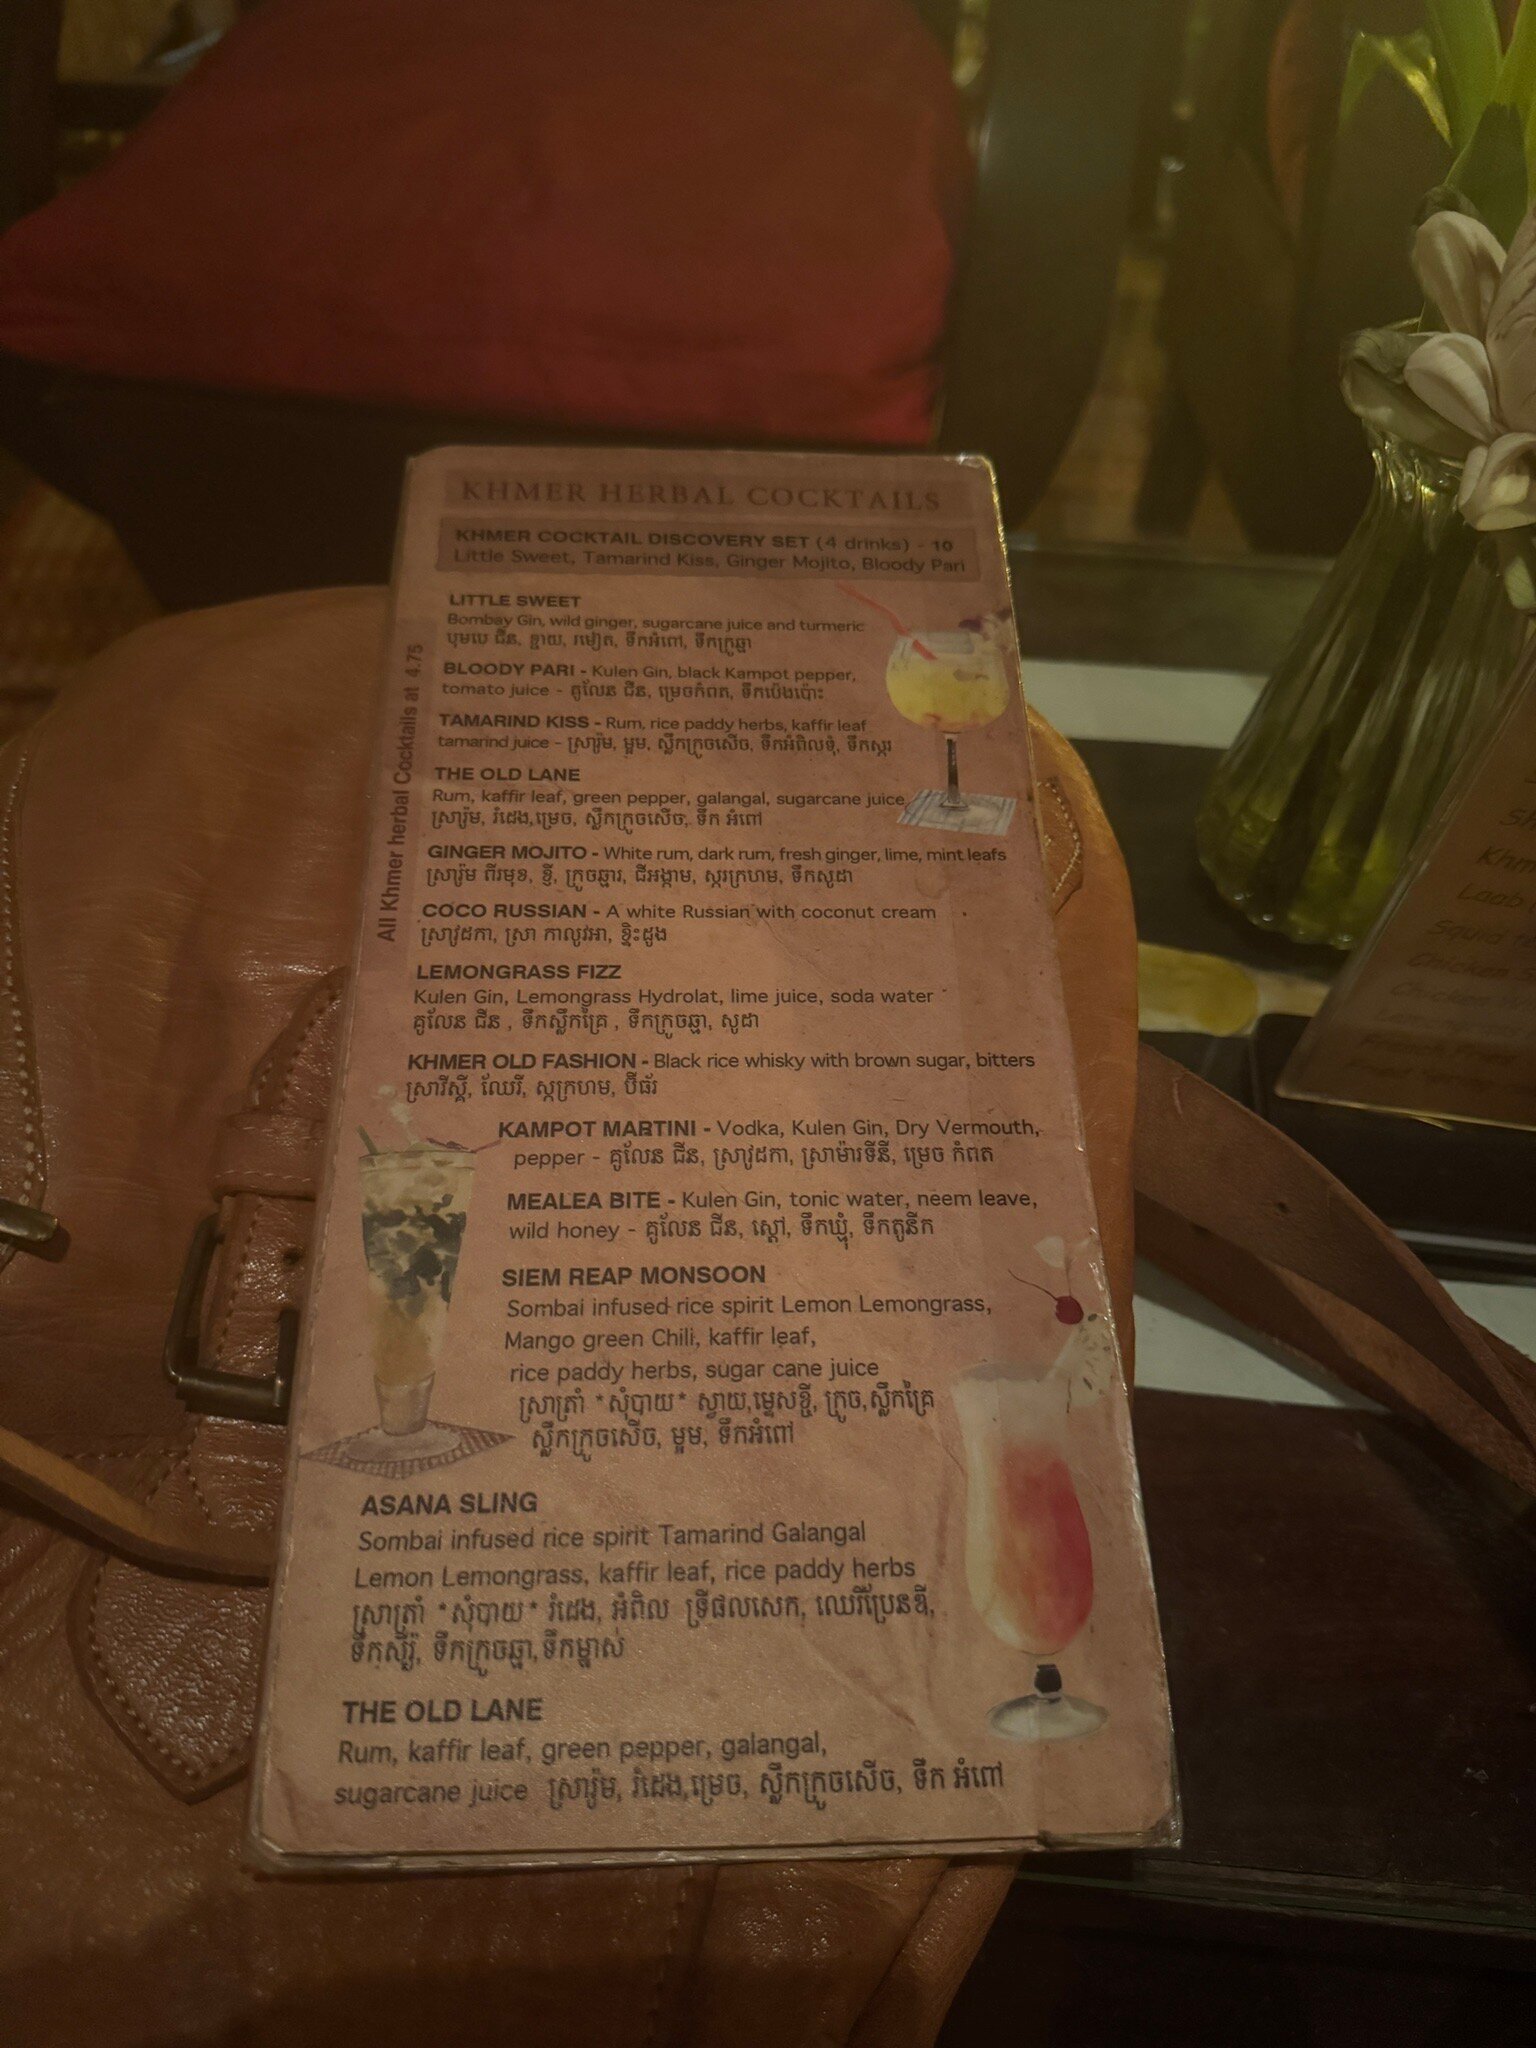 KHMER HERBAL COCKTAILS
KHMER COCKTAIL DISCOVERY SET (4 drinks) - 10
Little Sweet, Tamarind Kiss, Ginger Mojito, Bloody Pari
All Khmer herbal Cocktails at 4.75
LITTLE SWEET
Bombay Gin, wild ginger, sugarcane juice and turmeric
បុមបេ ជីន, ខ្ជាយ, រមៀត, ទឹកអំពៅ, ទឹកក្រូឆ្មា
BLOODY PARI - Kulen Gin, black Kampot pepper,
tomato juice - គូលែន ជីន, ម្រេចកំពត, ទឹកប៉េងប៉ោះ
TAMARIND KISS - Rum, rice paddy herbs, kaffir leaf
tamarind juice - ស្រារ៉ូម, ម្អម, ស្លឹកក្រូចសើច, ទឹកអំពិលទុំ, ទឹកស្ករ
THE OLD LANE
Rum, kaffir leaf, green pepper, galangal, sugarcane juice
ស្រារ៉ូម, រំដេង,ម្រេច, ស្លឹកក្រូចសើច, ទឹក អំពៅ
GINGER MOJITO - White rum, dark rum, fresh ginger, lime, mint leafs
ស្រារ៉ូម ពីរមុខ, ខ្ញី, ក្រូចឆ្មារ, ជីអង្កាម, ស្ករក្រហម, ទឹកសូដា
COCO RUSSIAN - A white Russian with coconut cream
ស្រាវូដកា, ស្រា កាលូវអា, ខ្ទិះដូង
LEMONGRASS FIZZ
Kulen Gin, Lemongrass Hydrolat, lime juice, soda water
គូលែន ជីន , ទឹកស្លឹកគ្រៃ , ទឹកក្រូចឆ្មា, សូដា
KHMER OLD FASHION - Black rice whisky with brown sugar, bitters
ស្រាវីស្គី, ឈែរី, ស្កក្រហម, ប៊ីធ័រ
KAMPOT MARTINI - Vodka, Kulen Gin, Dry Vermouth,
pepper - គូលែន ជីន, ស្រាវូដកា, ស្រាម៉ារទីនី, ម្រេច កំពត
MEALEA BITE - Kulen Gin, tonic water, neem leave,
wild honey - គូលែន ជីន, ស្តៅ, ទឹកឃ្មុំ, ទឹកតូនីក
SIEM REAP MONSOON
Sombai infused rice spirit Lemon Lemongrass,
Mango green Chili, kaffir leaf,
rice paddy herbs, sugar cane juice
ស្រាត្រាំ *សុំបាយ* ស្វាយ,ម្ទេសខ្ជី, ក្រូច,ស្លឹកគ្រៃ
ស្លឹកក្រូចសើច, ម្អម, ទឹកអំពៅ
ASANA SLING
Sombai infused rice spirit Tamarind Galangal
Lemon Lemongrass, kaffir leaf, rice paddy herbs
ស្រាត្រាំ *សុំបាយ* រំដេង, អំពិល ទ្រីផលសេក, ឈេរីប្រែនឌី,
ទឹកស៊ីរ៉ូ, ទឹកក្រូចឆ្មា,ទឹកម្នាស់
THE OLD LANE
Rum, kaffir leaf, green pepper, galangal,
sugarcane juice ស្រារ៉ូម, រំដេង,ម្រេច, ស្លឹកក្រូចសើច, ទឹក អំពៅ